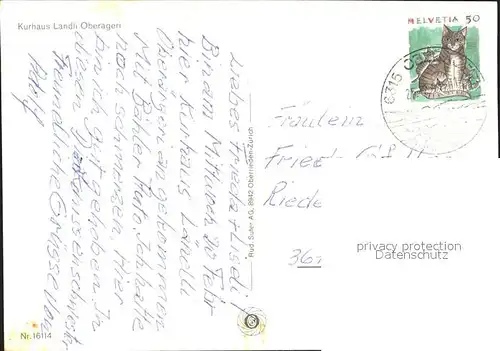 Kurhaus Ländli Oberägeri
HELVETIA 50
6315 OBER
Liebes Frieda Lisedi!
Bin am Mittwoch 20 Febr
hier Kurhaus Ländli
Oberägeri angekommen
Mit Bahn Auto. Ich hatte
noch schmerzen. Hier
bin ich gut gehoben. In
diesen Diakonissenschwestern
Freundliche Grüsse von
Adolf
Fräulein
Fried
Riede
36
Rud. Suter AG, 8942 Oberrieden-Zürich
privacy protection
Datenschutz
Nr. 16114